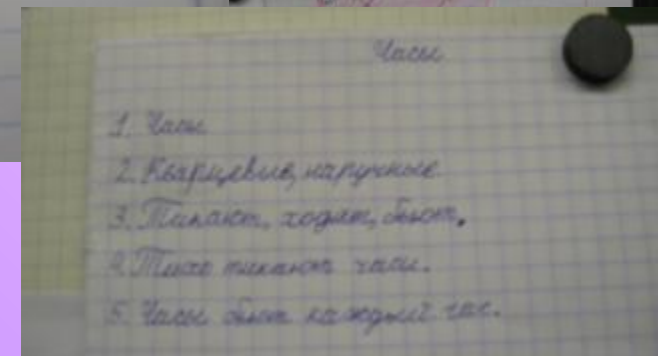 Часы
1. Часы
2. Кварцевые, наручные
3. Тикают, ходят, бьют.
4. Тихо тикают часы.
5. Часы бьют каждый час.